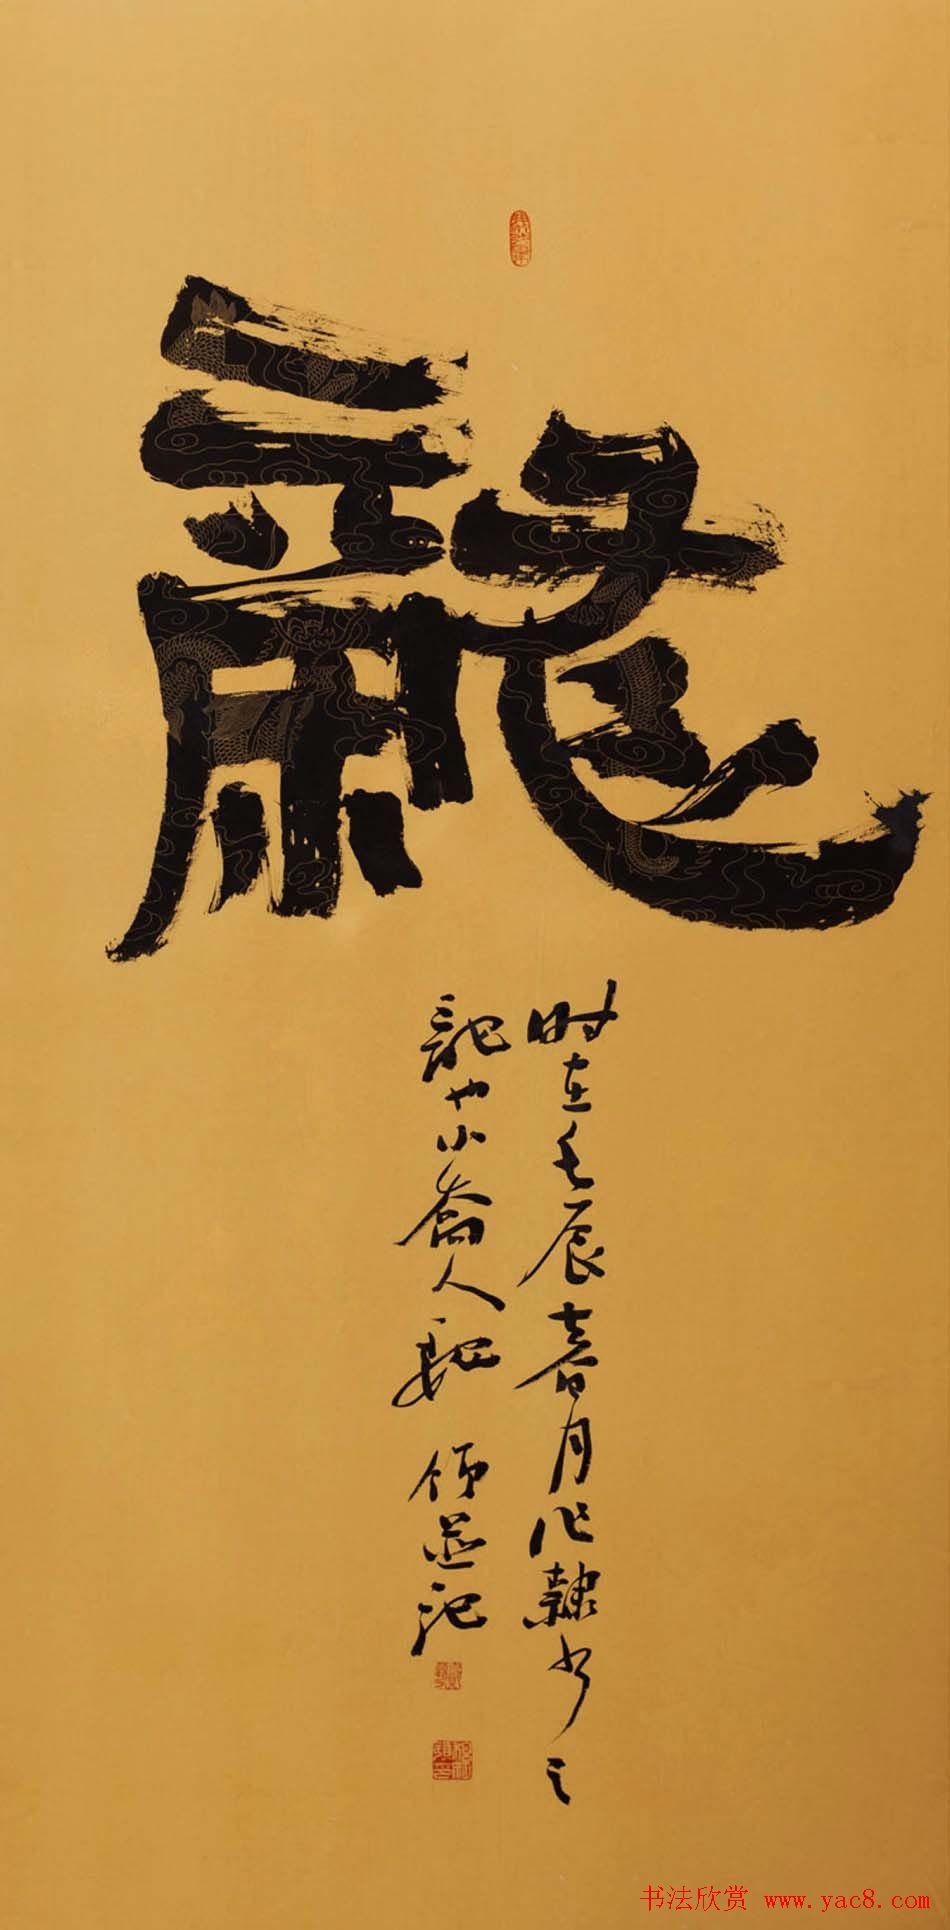 龍
时在壬辰春月作隸书之
龍也小人並记
书法欣赏 www.yac8.com